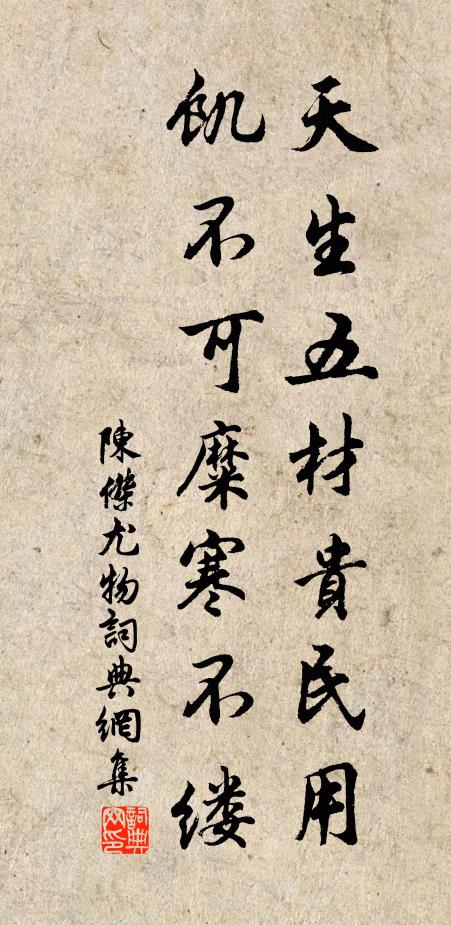 天生五材貴民用
飢不可糜寒不缕
陳傑尤物詞典網集
詞典網印